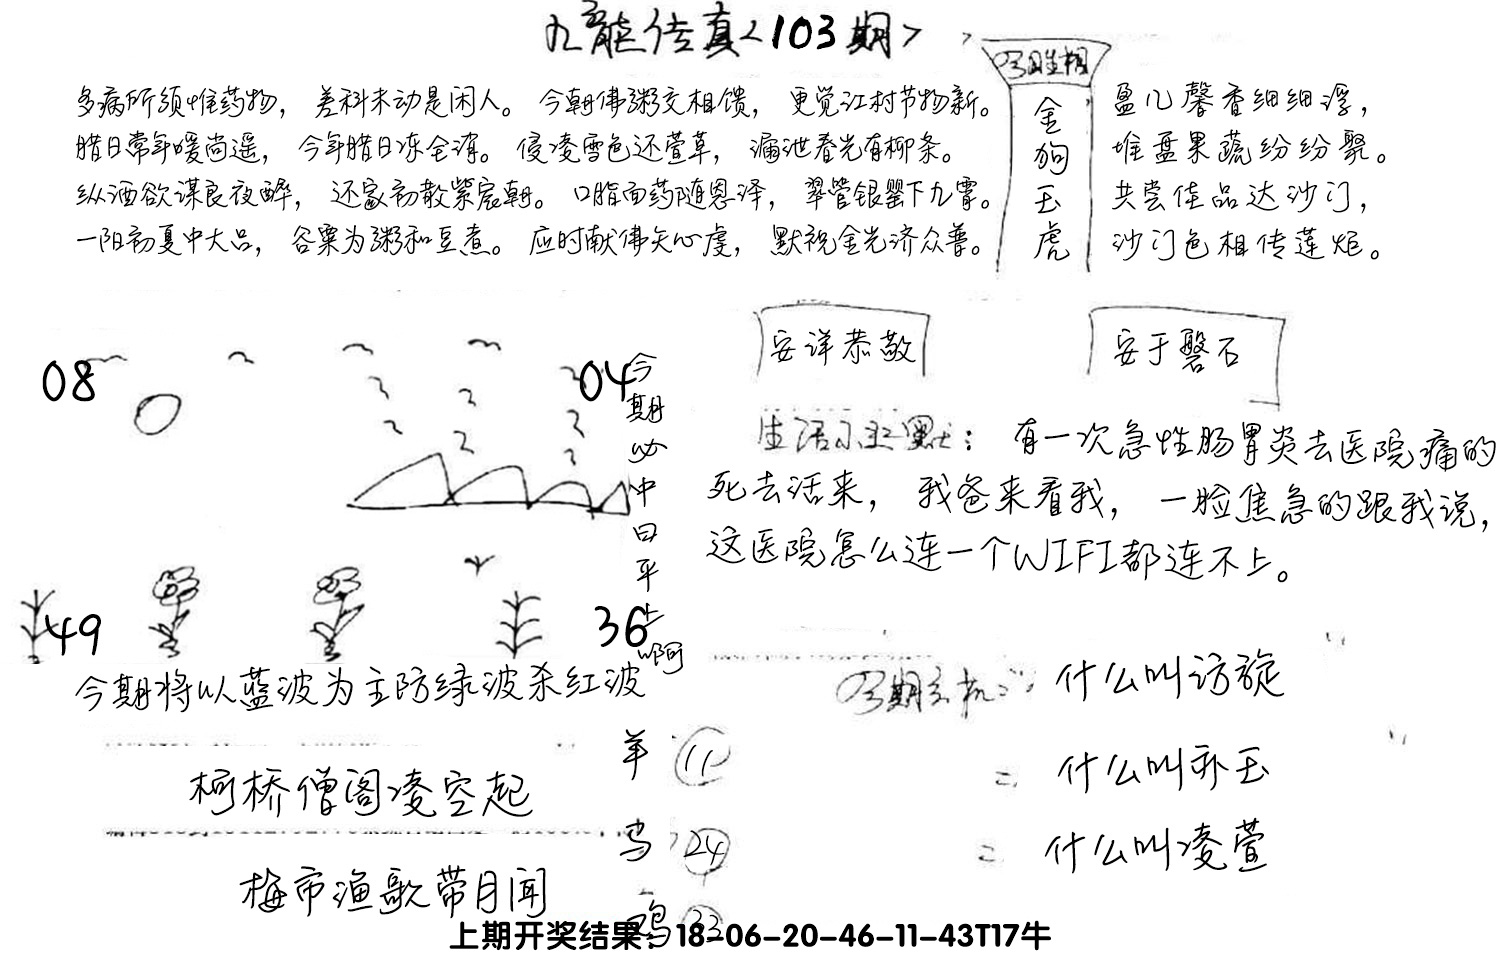 九龙传真<103期>
多病所须惟药物，差科未动是闲人。今朝佛粥交相馈，更觉江村节物新。
腊日常年暖尚遥，今年腊日冻全消。侵凌雪色还萱草，漏泄春光有柳条。
纵酒欲谋良夜醉，还家初散紫宸朝。口脂面药随恩泽，翠管银罂下九霄。
一阳初夏中大吕，谷粟为粥和豆煮。应时献佛矢心虔，默祝金光济众普。
今日生相
金狗玉虎
盈几馨香细细浮，
堆盘果蔬纷纷聚。
共尝佳品达沙门，
沙门色相传莲炬。
安详恭敬
安于磐石
08
04
49
36
今期必中曰平 啊
生活 默：有一次急性肠胃炎去医院痛的
死去活来，我爸来看我，一脸焦急的跟我说，
这医院怎么连一个WIFI都连不上。
今期将以蓝波为主防绿波杀红波
柯桥僧阁凌空起
梅市渔歌带月闻
羊 11
24
鸡 33
今期玄机：什么叫访旋
= 什么叫孙玉
= 什么叫凌萱
上期开奖结果：18-06-20-46-11-43T17牛